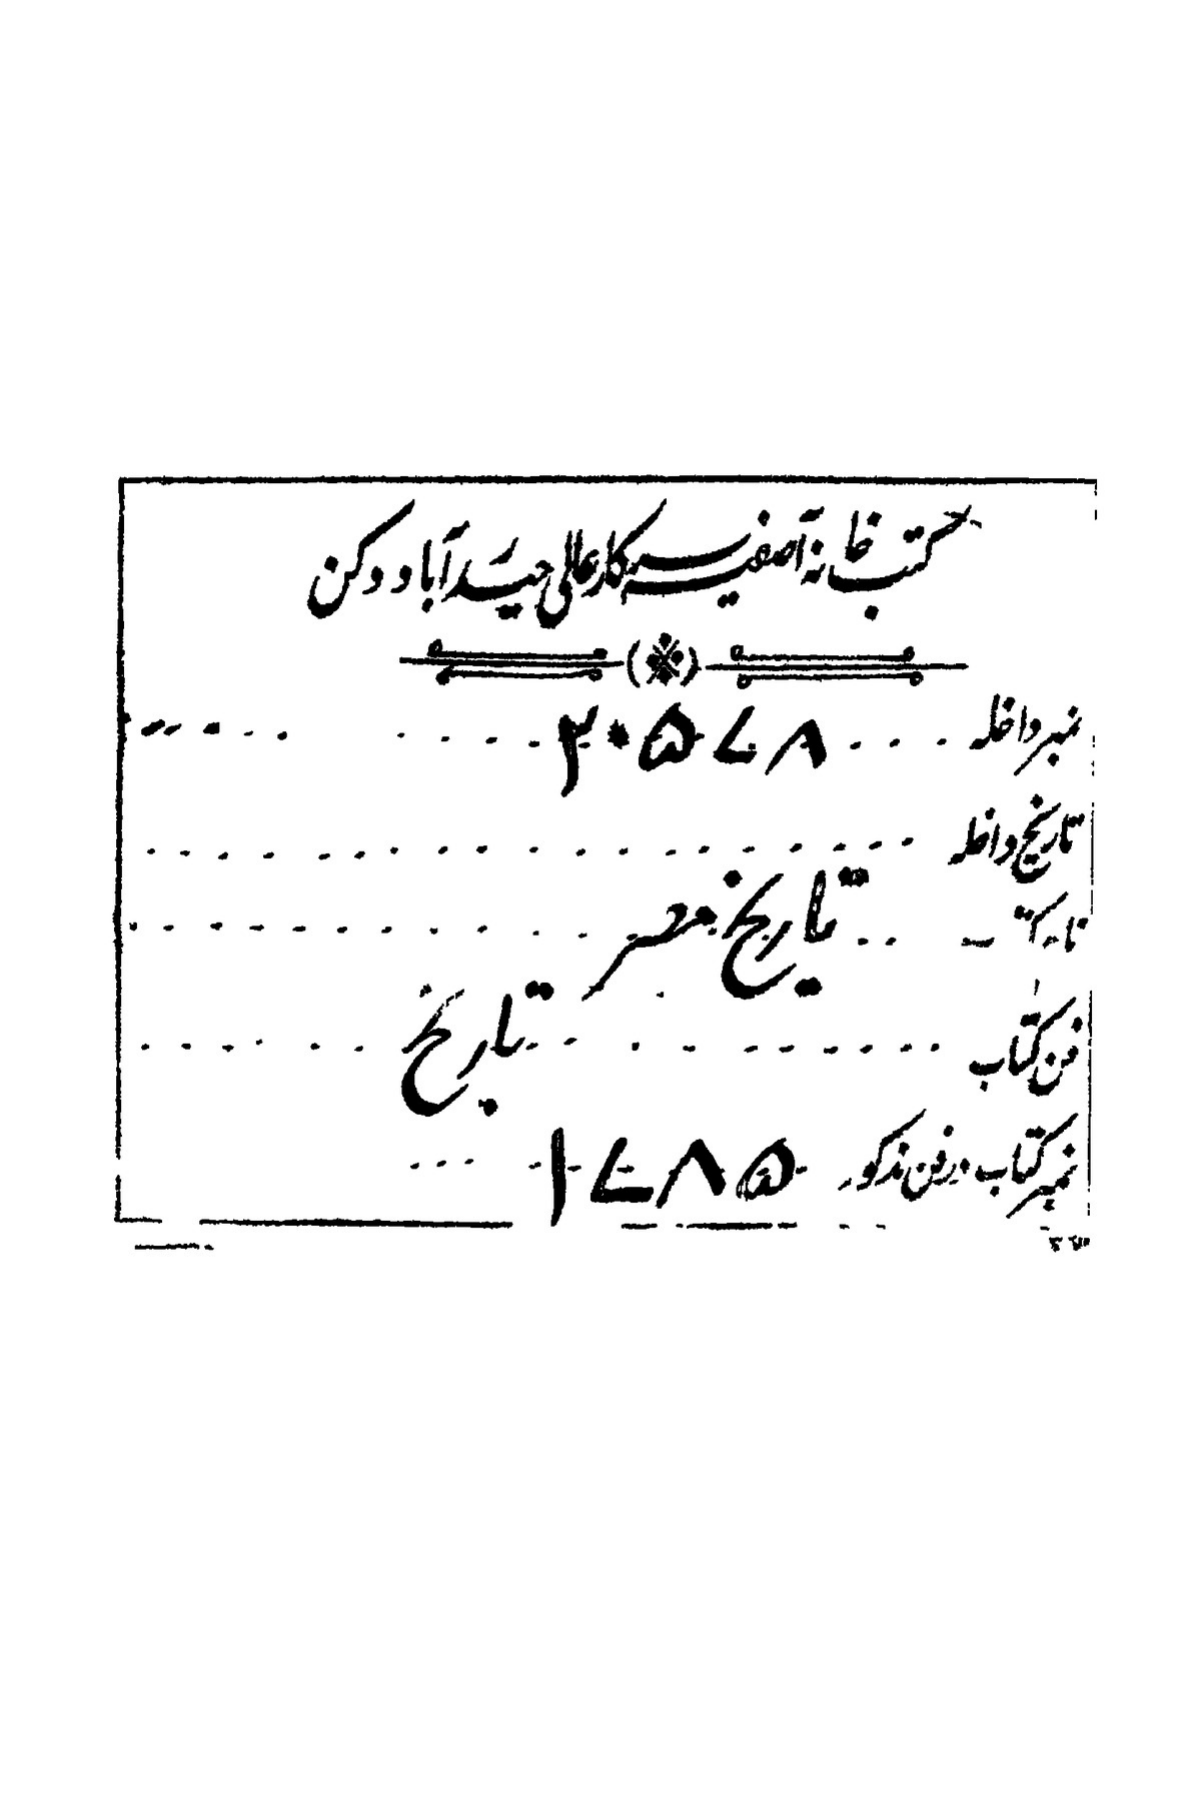 کتب خانہ آصفیہ سرکار عالی حیدرآباد دکن
نمبر داخلہ ۲۰۵۷۸
تاریخ داخلہ
تاریخ مصر
فن کتاب تاریخ
نمبر کتاب در فن مذکور ۱۷۸۵